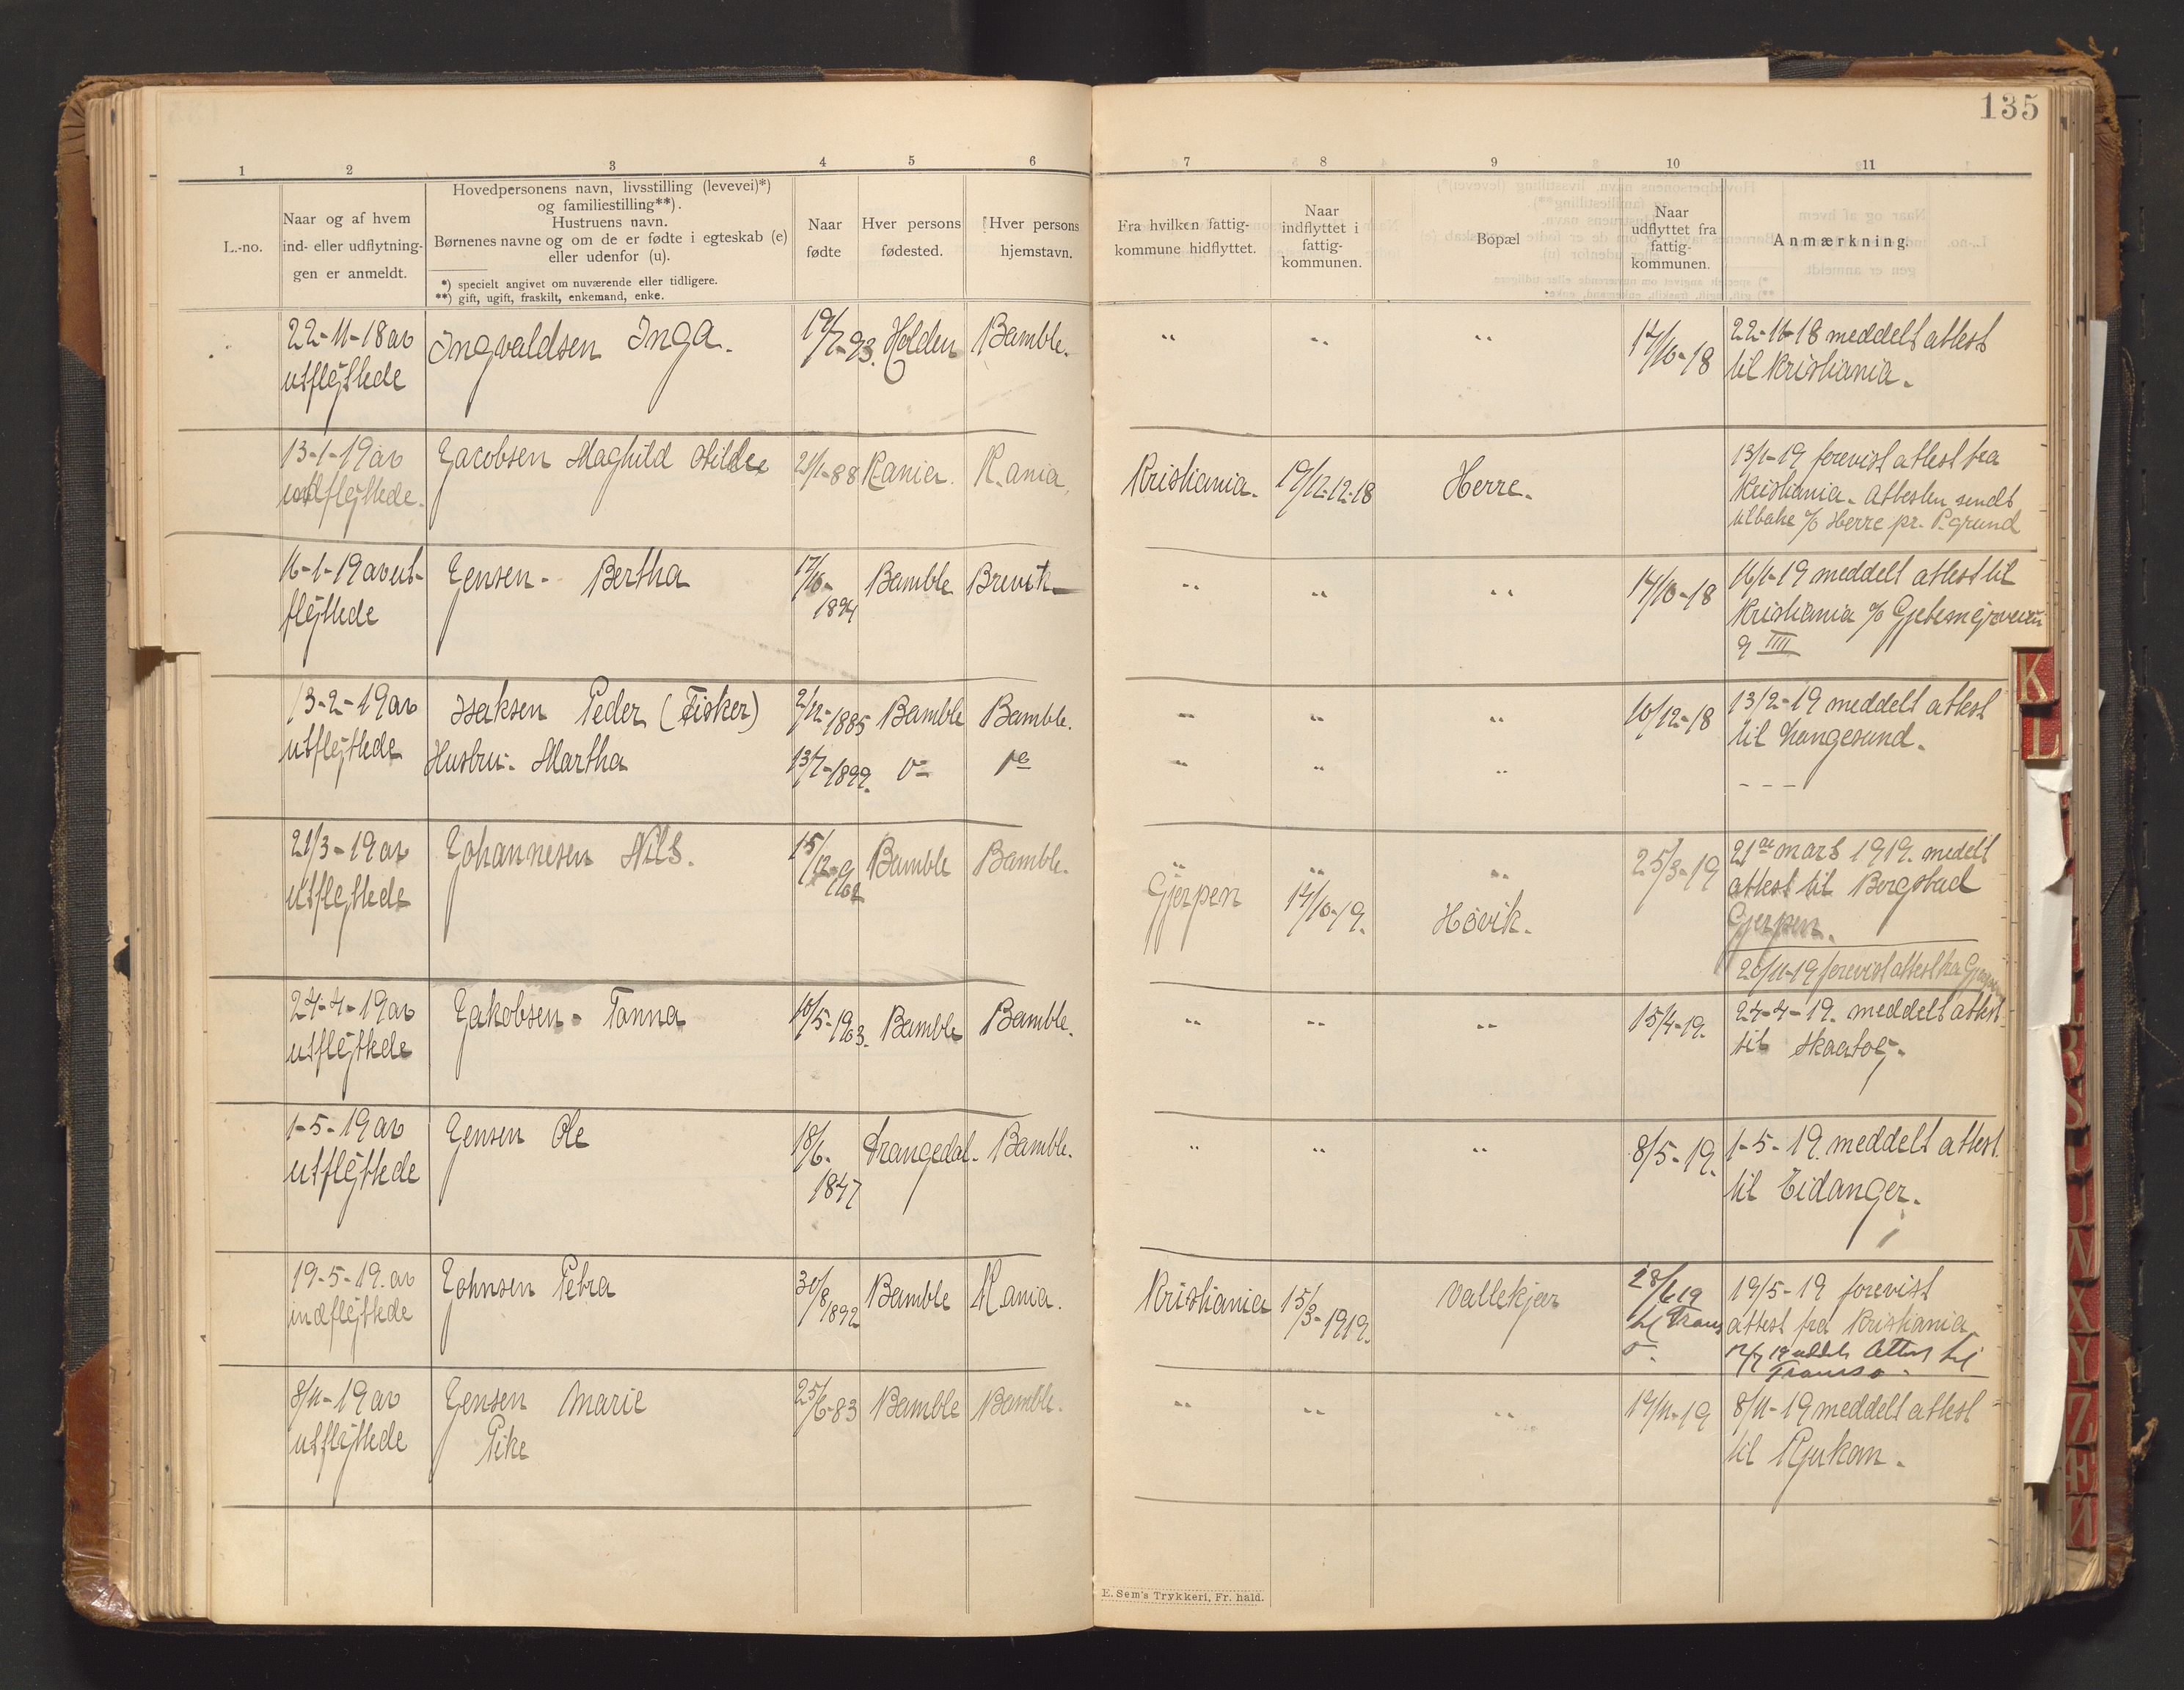 135
1 2 3 4 5 6 7 8 9 10 11
L.-no.
Naar og af hvem
ind- eller udflytnin-
gen er anmeldt.
Hovedpersonens navn, livsstilling (levevei)*)
og familiestilling**).
Hustruens navn.
Børnenes navne og om de er fødte i egteskab (e)
eller udenfor (u).
*) specielt angivet om nuværende eller tidligere.
**) gift, ugift, fraskilt, enkemand, enke.
Naar
fødte
Hver persons
fødested.
Hver persons
hjemstavn.
Fra hvilken fattig-
kommune hidflyttet.
Naar
indflyttet i
fattig-
kommunen.
Bopæl
Naar
udflyttet fra
fattig-
kommunen.
Anmærkning.
22-11-18 av Ingvaldsen Inga. 19/7-93. Holden Bamble. " " " 14/10-18 22-11-18 meddelt attest
utflyttede til Kristiania.
13-1-19 av Jacobsen Maghild Hilde 21/1-88 K.ania. K.ania. Kristiania. 19/12-12-18 Herre. 13/1-19 forevist attest fra
indflyttede. Kristiania. Attesten sendt
tilbake % Herre pr. P.grund
16-1-19 av ut- Jensen - Bertha 17/10- Bamble Brevik " " " 14/10-18 16/1-19 meddelt attest til
flyttede 1894 Kristiania %
9 IIII
13-2-19 av Isaksen Peder (Fisker) 2/12-1885 Bamble Bamble. " " " 10/12-18 13/2-19 meddelt attest
utflyttede til Langesund.
Hustru. Martha 13/7-1899. " " " - - -
21/3-19 av Johannesen Nils. 15/12-1902 Bamble Bamble. " " " 25/3-19 21de mars 1919. medelt
utflyttede attest til Bergsbad
Gjerpen 14/10-19. Hövik. Gjerpen.
20/11-19 forevist attest fra Gjerpen
24-4-19 av Jakobsen - Tonna 10/5-1903. Bamble Bamble. " " " 15/4-19. 24-4-19. meddelt attest
utflyttede til Skaatöy.
1-5-19 av Jensen Ole 18/6- Drangedal. Bamble. " " " 8/5-19. 1-5-19. meddelt attest.
utflyttede 1847 til Eidanger.
19-5-19. av Johnsen Petra 30/8 1892 Bamble K.ania. Kristiania 15/3-1919. Vallekjær 28/6 19 19/5-19 forevist
indflyttede til Troms attest fra Kristiania
ö. 19 uddelt Attest til
Tromsø.
8/11-19 av Jensen Marie 25/6-83 Bamble Bamble. " " " 19/11-19 8/11-19 meddelt attest
utflyttede Pike til Rjukan.
E. Sem's Trykkeri, Fr. hald.
K
L
X
Y
Z
Æ